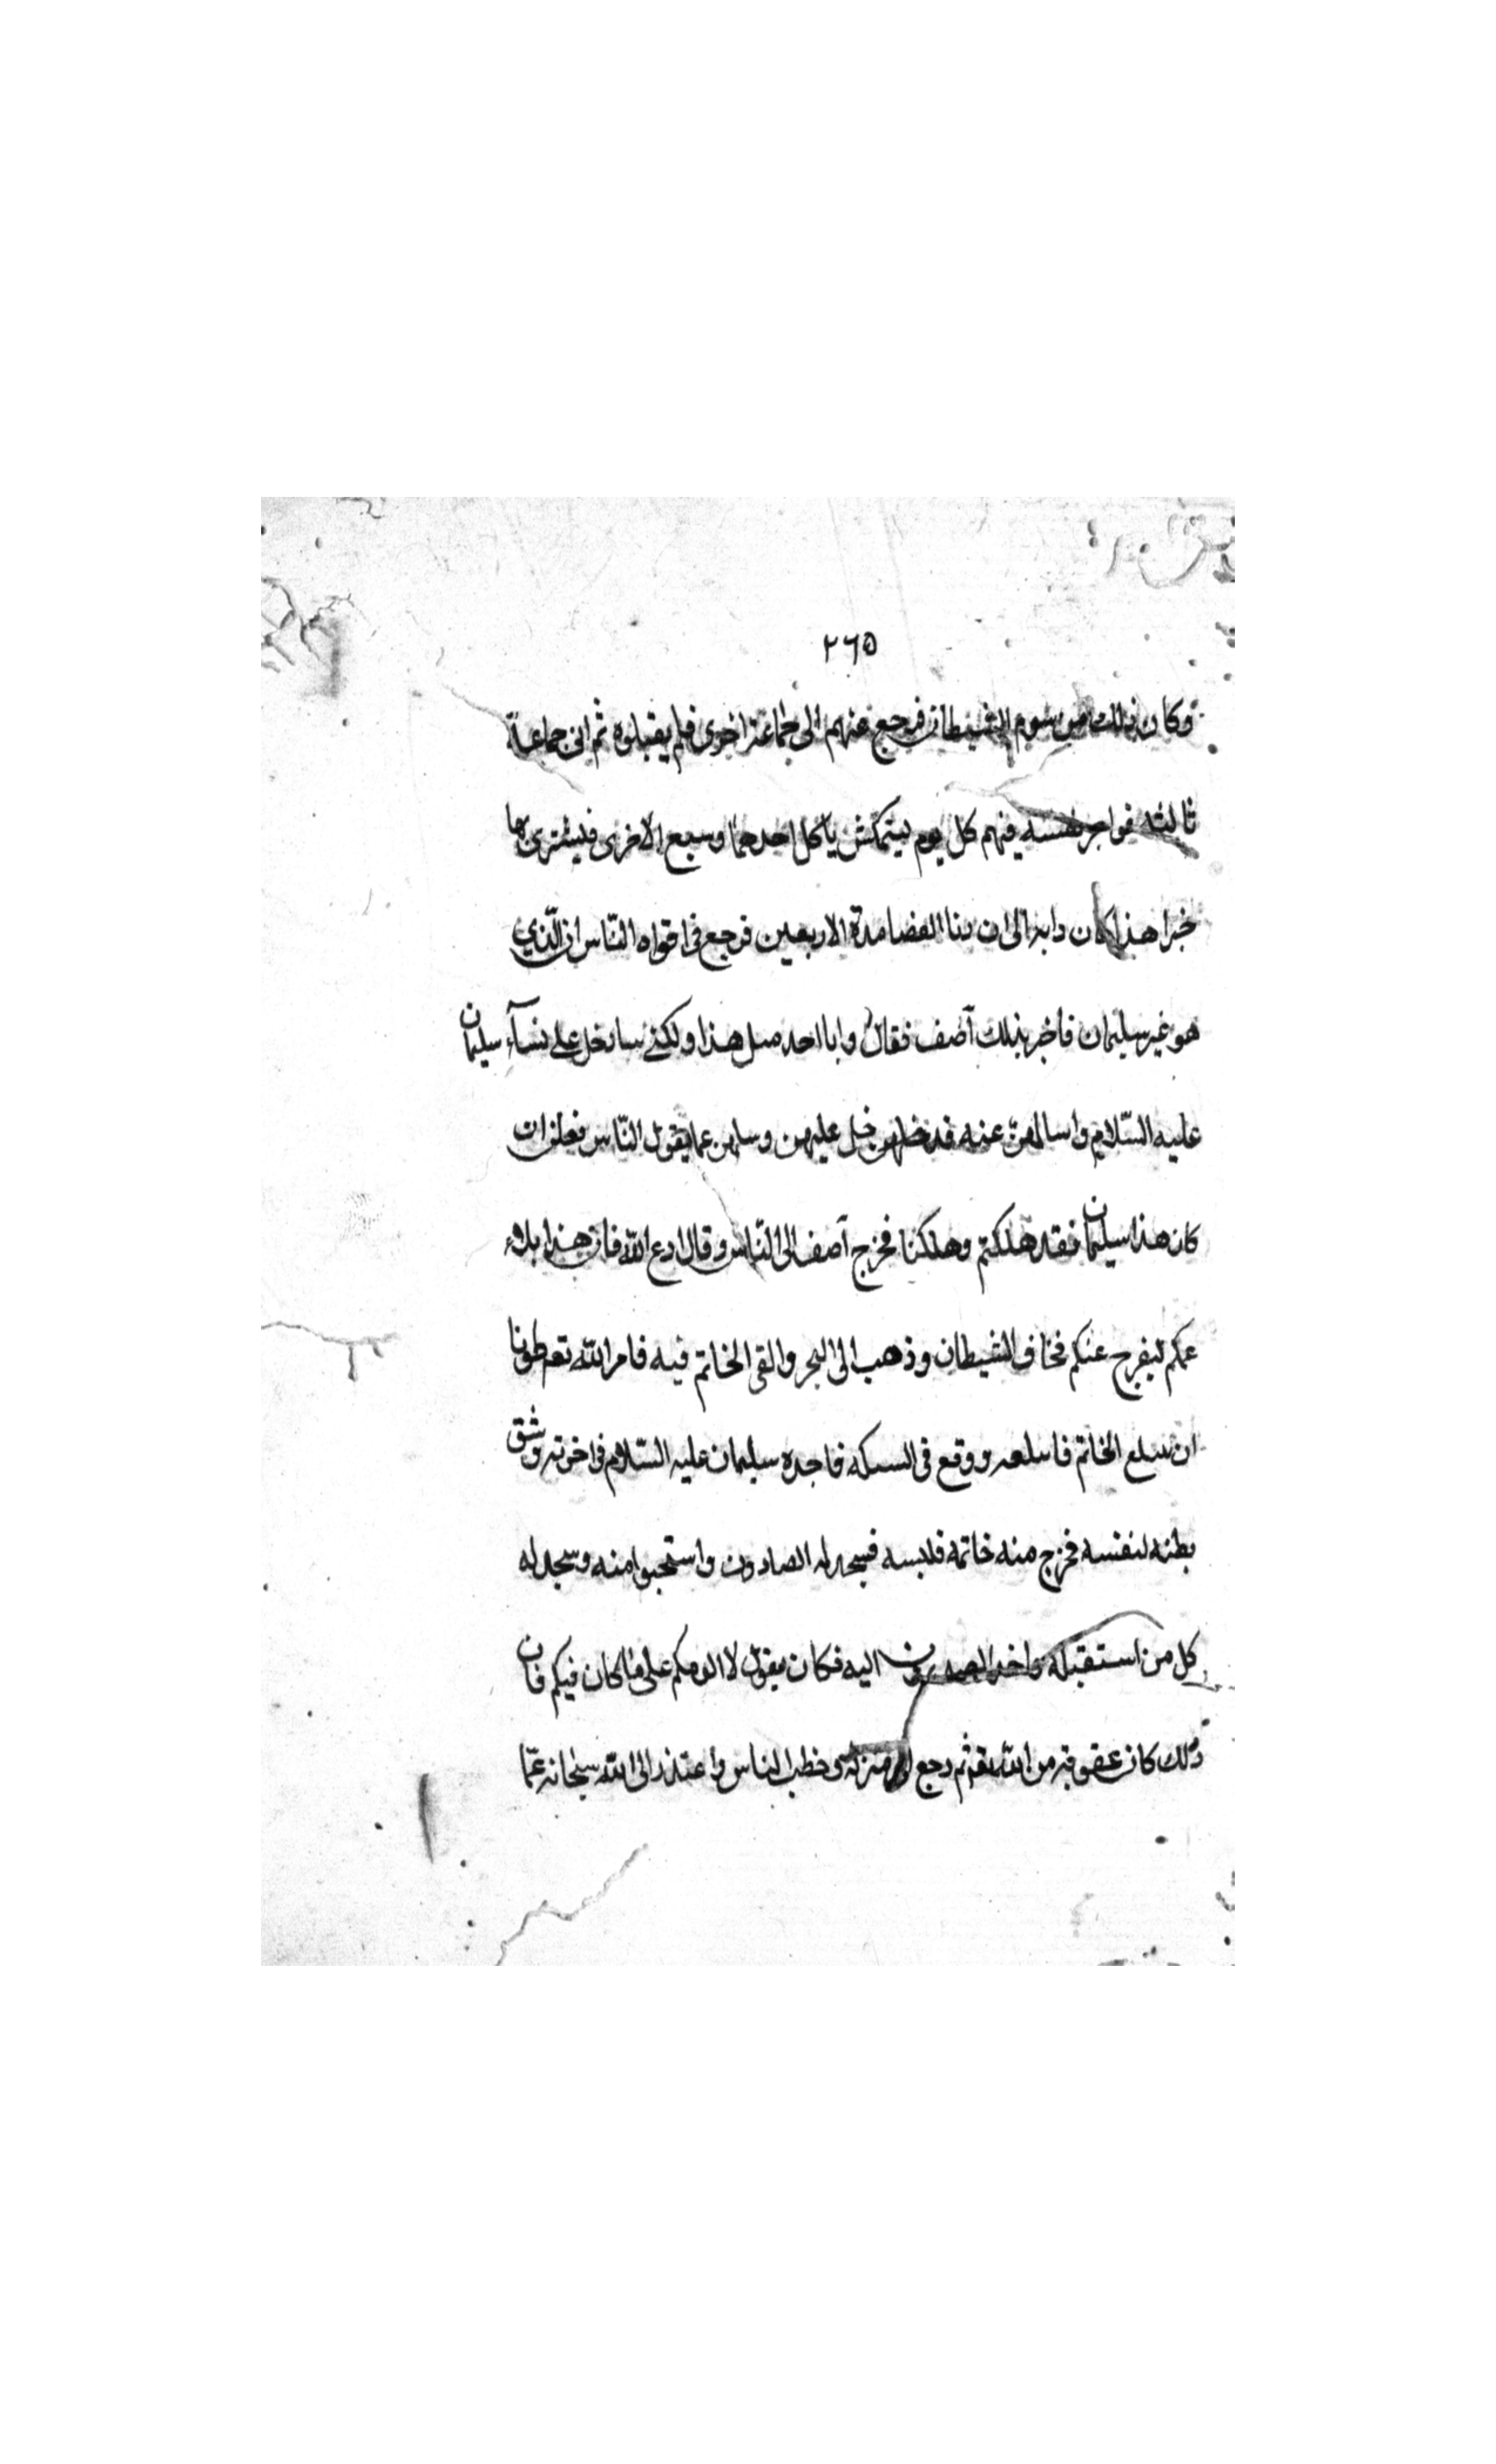 ٢٦٥
وكان ذلك من شوم الشيطان فرجع عنهم الى جماعة اخرى فلم يقبلوه ثم اتى جماعة
ثالثة فواجر نفسه فيهم كل يوم بسمكتين ياكل احدهما وسبع الاخرى فيشترى بها
خبرا هذا كان دابه الى ان انقضا مدة الاربعين فرجع فى افواه النّاس ان الّذي
هو غير سليمان فاخبر بذلك آصف فقال وانا اجد مثل هذا ولكنى سادخل على نسآء سليمان
عليه السّلام واسالهنّ عنه فدخل عليهن وسالهن عما يقول النّاس فقلن ان
كان هذا سليمان فقد هلكتم وهلكنا فخرج آصف الى النّاس وقال ادع اللّه فان هذا بلاء
عمكم ليفرج عنكم فخاف الشيطان وذهب الى البحر والقى الخاتم فيه فامر اللّه تعم
ان سلع الخاتم فاسلعه ووقع فى السبكه فاجده سليمان عليه السّلام فى اخرته وشق
بطنه لنفسه فخرج منه خاتمه فلبسه فسجد له الصادون واستحيوا منه وسجد له
كل من استقبله واخذ اليه فكان يقول لا الومكم على ما كان فيكم فان
ذلك كان عقوبة من اللّه تعم ثم رجع الى منزله وخطب الناس واعتذر الى اللّه سبحانه عمّا